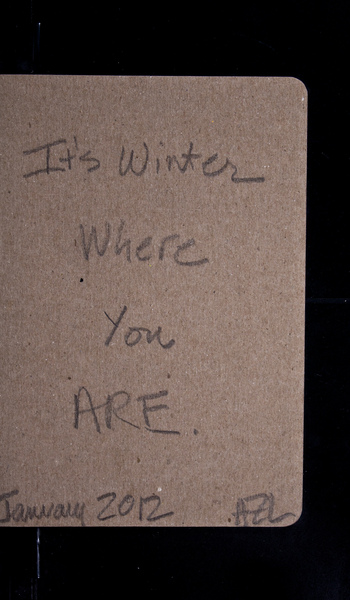 It's Winter
Where
You
ARE.
January 2012 AZL